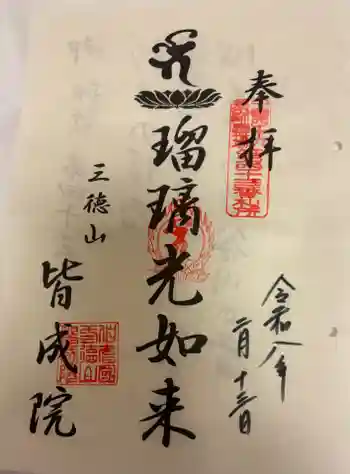 奉拝
令和八年
二月十三日
瑠璃光如来
三徳山
皆成院